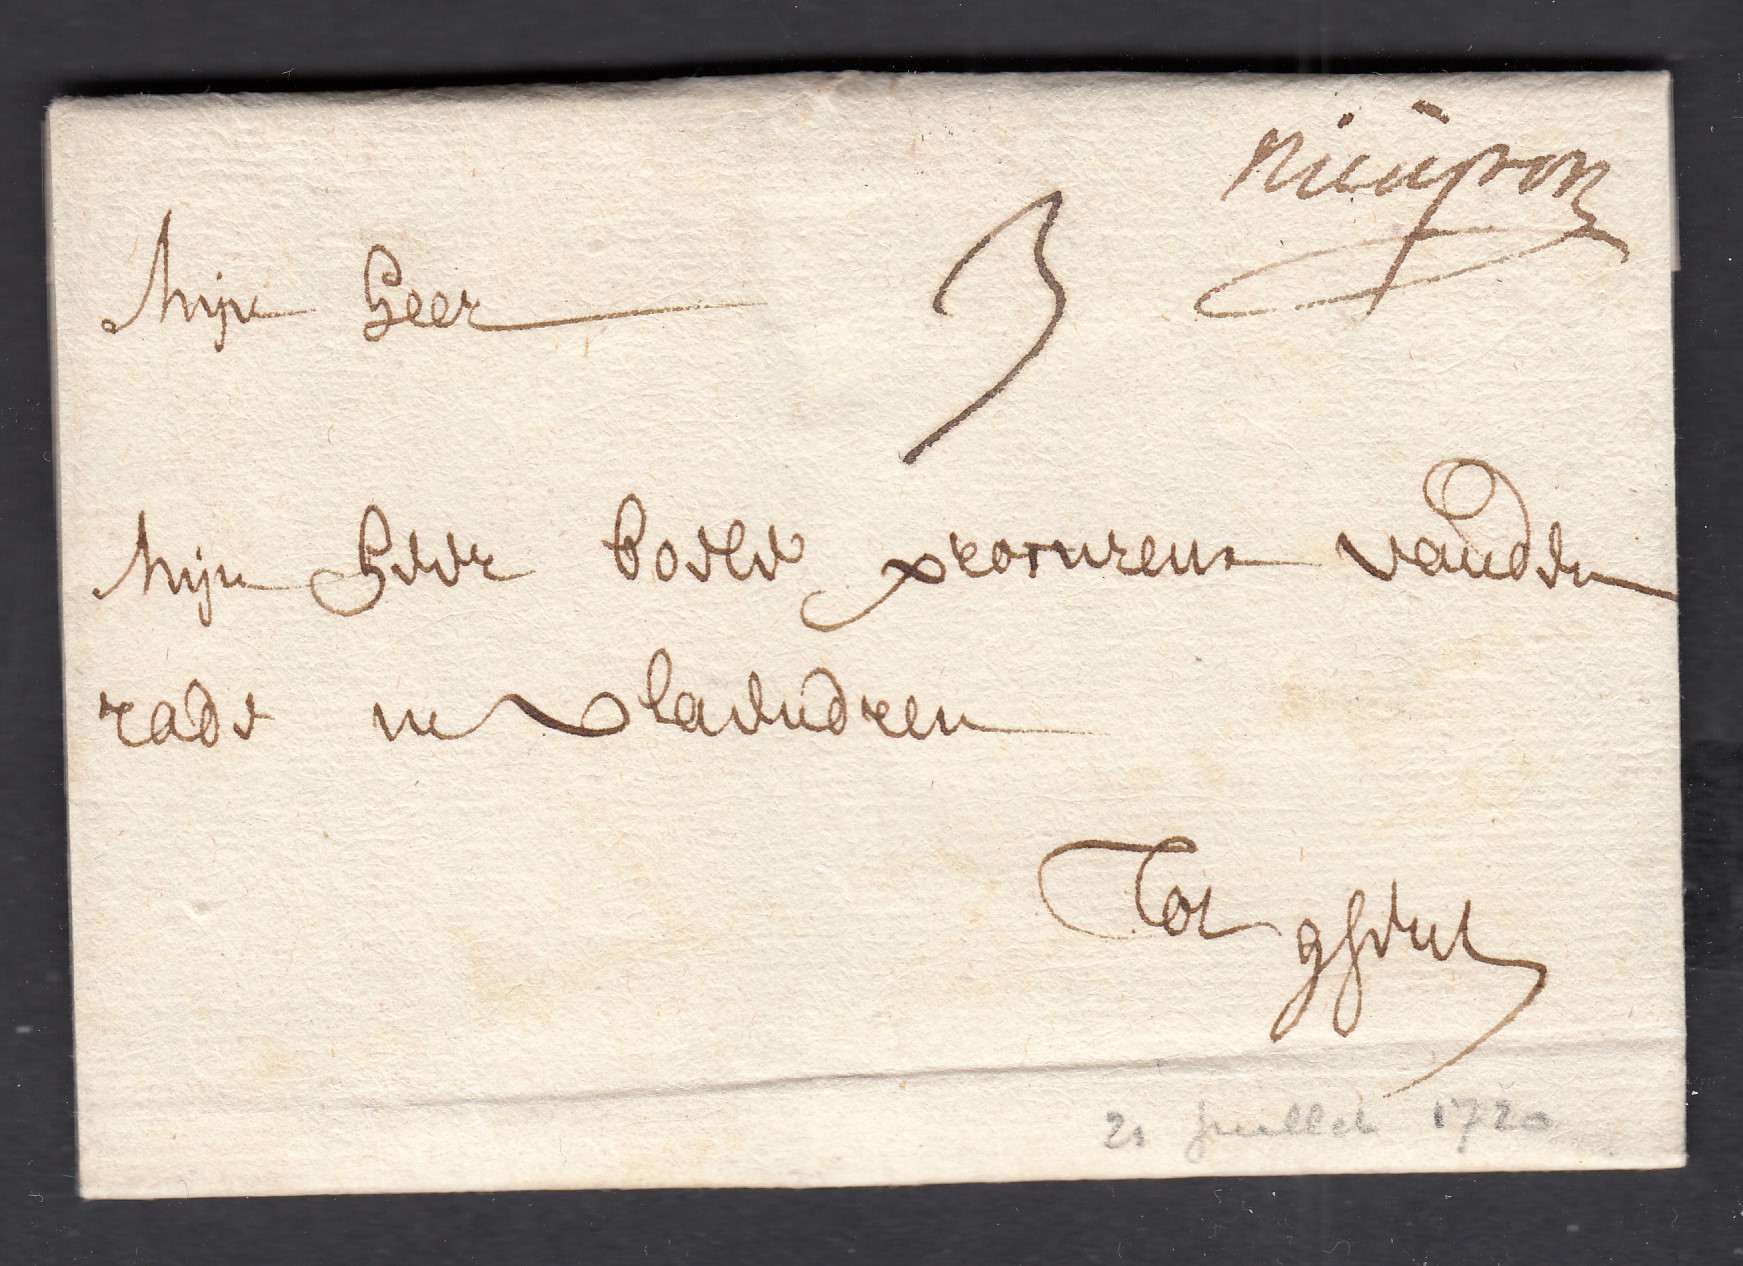 nieüpor
3
Mijn Heer
Mijn Heer Boele procureur vanden
rade in Vlaendren
Tot ghent
21 Juillet 1720